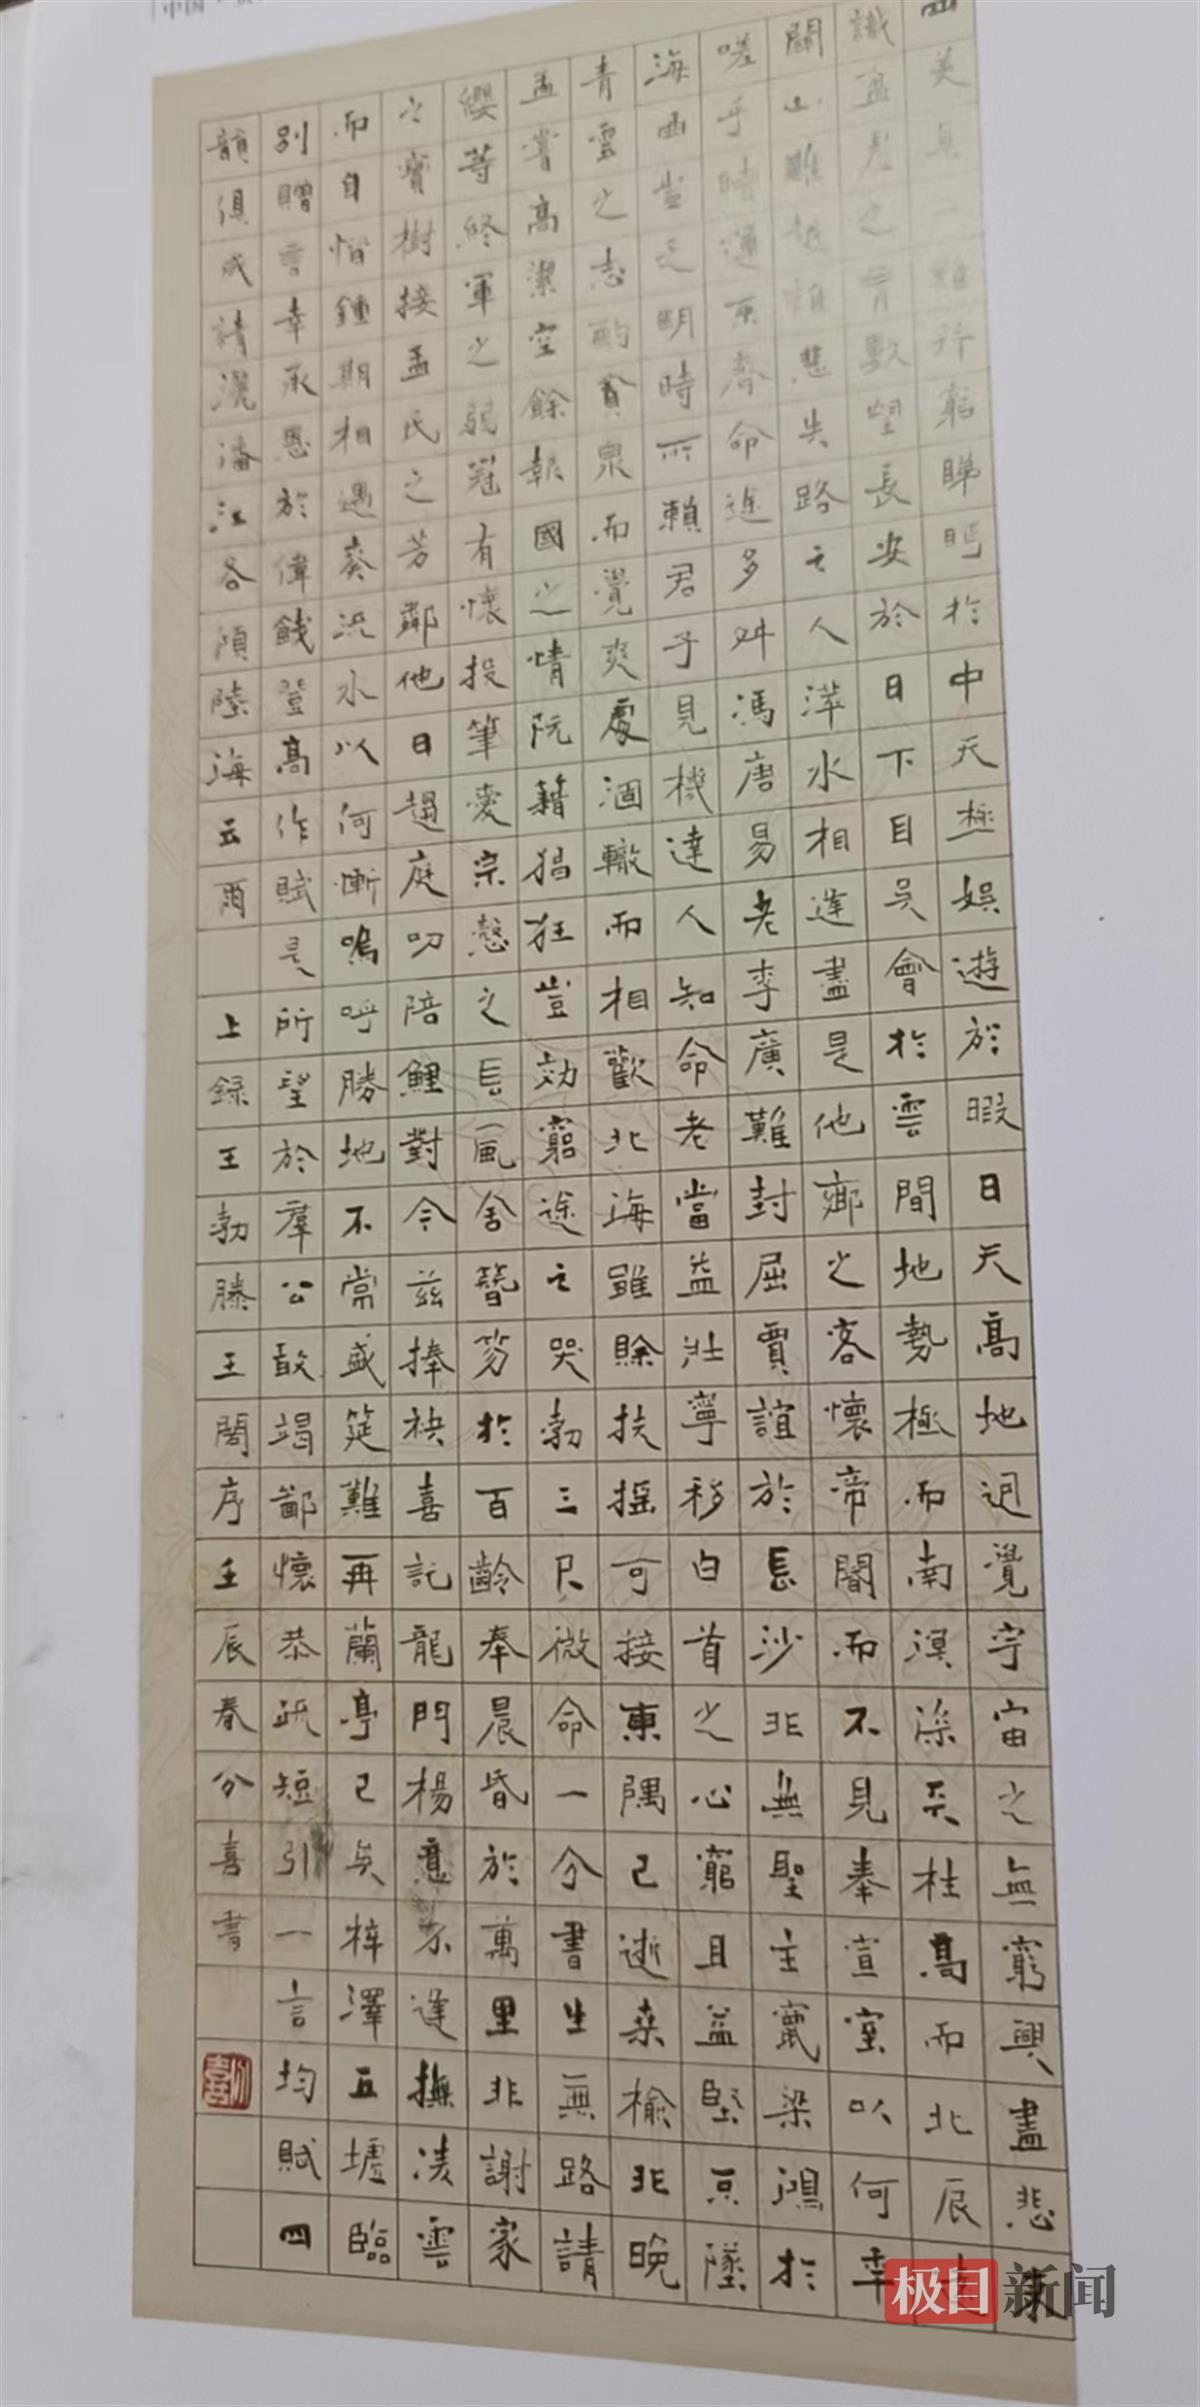 四美具二難并窮睇眄於中天極娛遊於暇日天高地迥覺宇宙之無窮興盡悲來
識盈虛之有數望長安於日下目吳會於雲間地勢極而南溟深天柱高而北辰遠
關山難越誰悲失路之人萍水相逢盡是他鄉之客懷帝閽而不見奉宣室以何年
嗟乎時運不齊命途多舛馮唐易老李廣難封屈賈誼於長沙非無聖主竄梁鴻於
海曲豈乏明時所賴君子見機達人知命老當益壯寧移白首之心窮且益堅不墜
青雲之志酌貪泉而覺爽處涸轍而相歡北海雖賒扶搖可接東隅已逝桑榆非晚
孟嘗高潔空餘報國之情阮籍猖狂豈効窮途之哭勃三尺微命一介書生無路請
纓等終軍之弱冠有懷投筆愛宗慤之長風舍簪笏於百齡奉晨昏於萬里非謝家
之寶樹接孟氏之芳鄰他日趨庭叨陪鯉對今茲捧袂喜託龍門楊意不逢撫淩雲
而自惜鍾期相遇奏流水以何慚嗚呼勝地不常盛筵難再蘭亭已矣梓澤丘墟臨
別贈言幸承恩於偉餞登高作賦是所望於羣公敢竭鄙懷恭疏短引一言均賦四
韻俱成請灑潘江各傾陸海云爾 上録王勃滕王閣序壬辰春分喜書
极目新闻